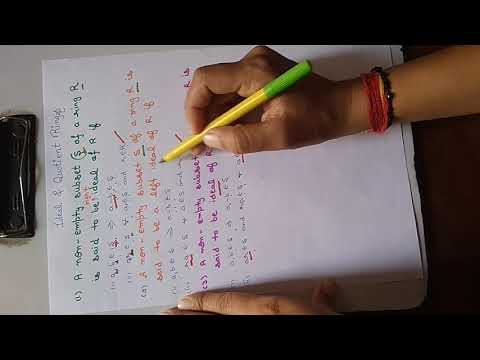 Ideal & Quotient Rings
(1) A non-empty subset S of a ring R
right
is said to be ideal of R if
(i) a,b ∈ S ⇒ a-b ∈ S
(ii) ar ∈ S ∀ a ∈ S and r ∈ R
(2) A non-empty subset S of a ring R is
said to be a left ideal of R if
(i) a,b ∈ S ⇒ a-b ∈ S
(ii) ra ∈ S ∀ a ∈ S and
(3) A non-empty subset R is
said to be ideal of R
(i) a,b ∈ S ⇒ a-b ∈ S
(ii) ar ∈ S and ra ∈ S ∀